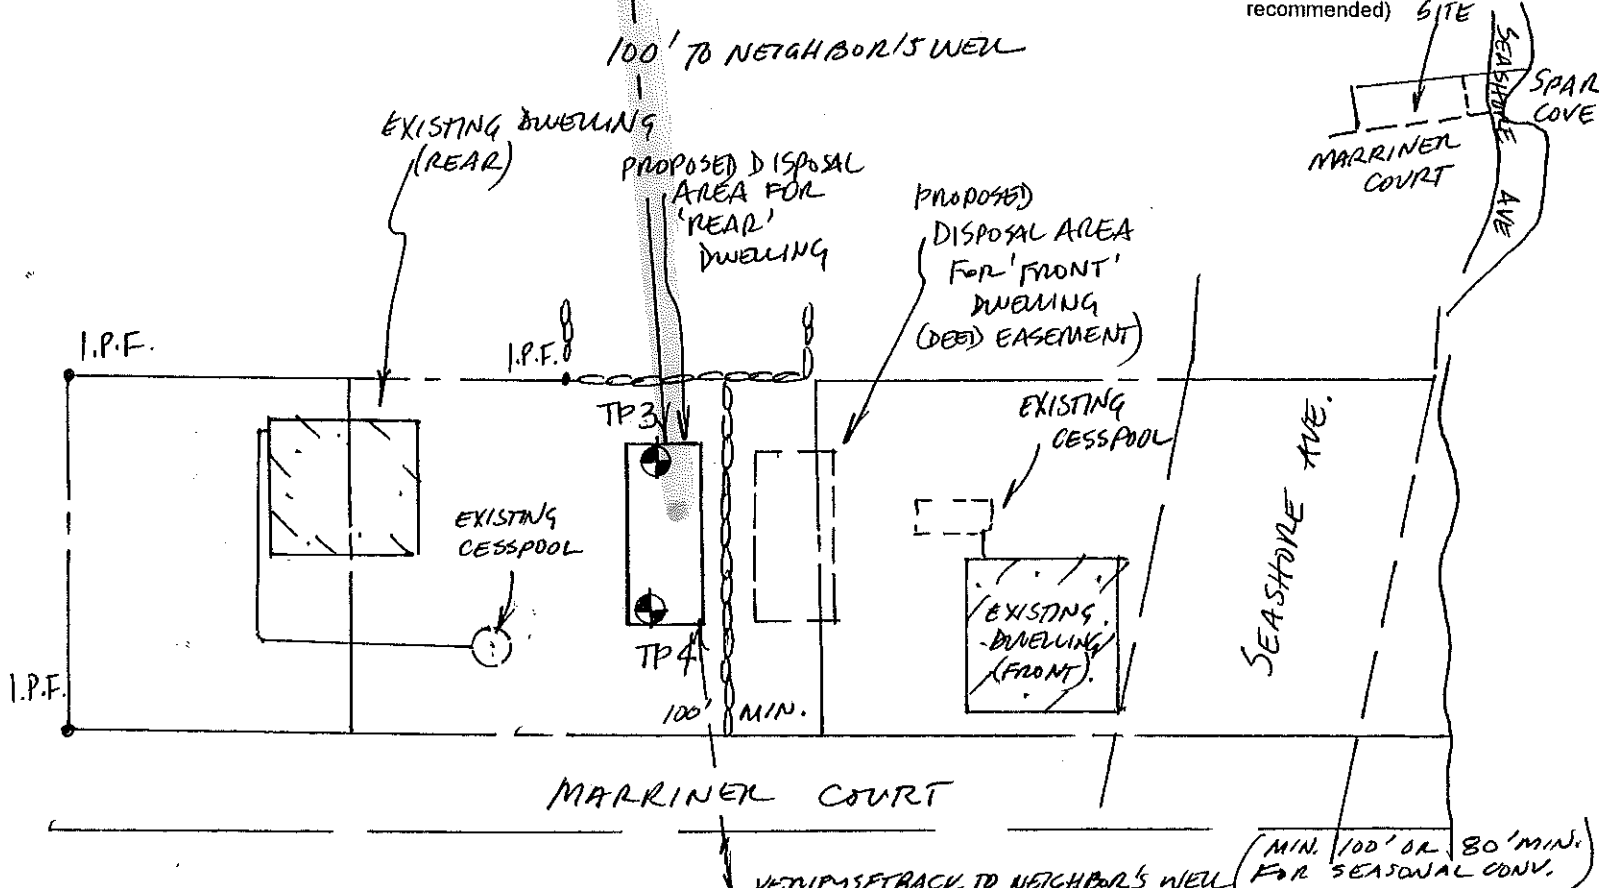 recommended)
SITE
100' TO NEIGHBOR'S WELL
SEASHORE AVE
SPAR
COVE
MARRINER
COURT
EXISTING DWELLING
(REAR)
PROPOSED DISPOSAL
AREA FOR
'REAR'
DWELLING
PROPOSED
DISPOSAL AREA
FOR 'FRONT'
DWELLING
(DEED EASEMENT)
I.P.F.
I.P.F.
TP3
EXISTING
CESSPOOL
EXISTING
CESSPOOL
SEASHORE AVE.
EXISTING
DWELLING
(FRONT).
TP4
I.P.F.
100' MIN.
MARRINER COURT
VERIFY SETBACK TO NEIGHBOR'S WELL
(MIN. 100' OR 80' MIN.
FOR SEASONAL CONV.)